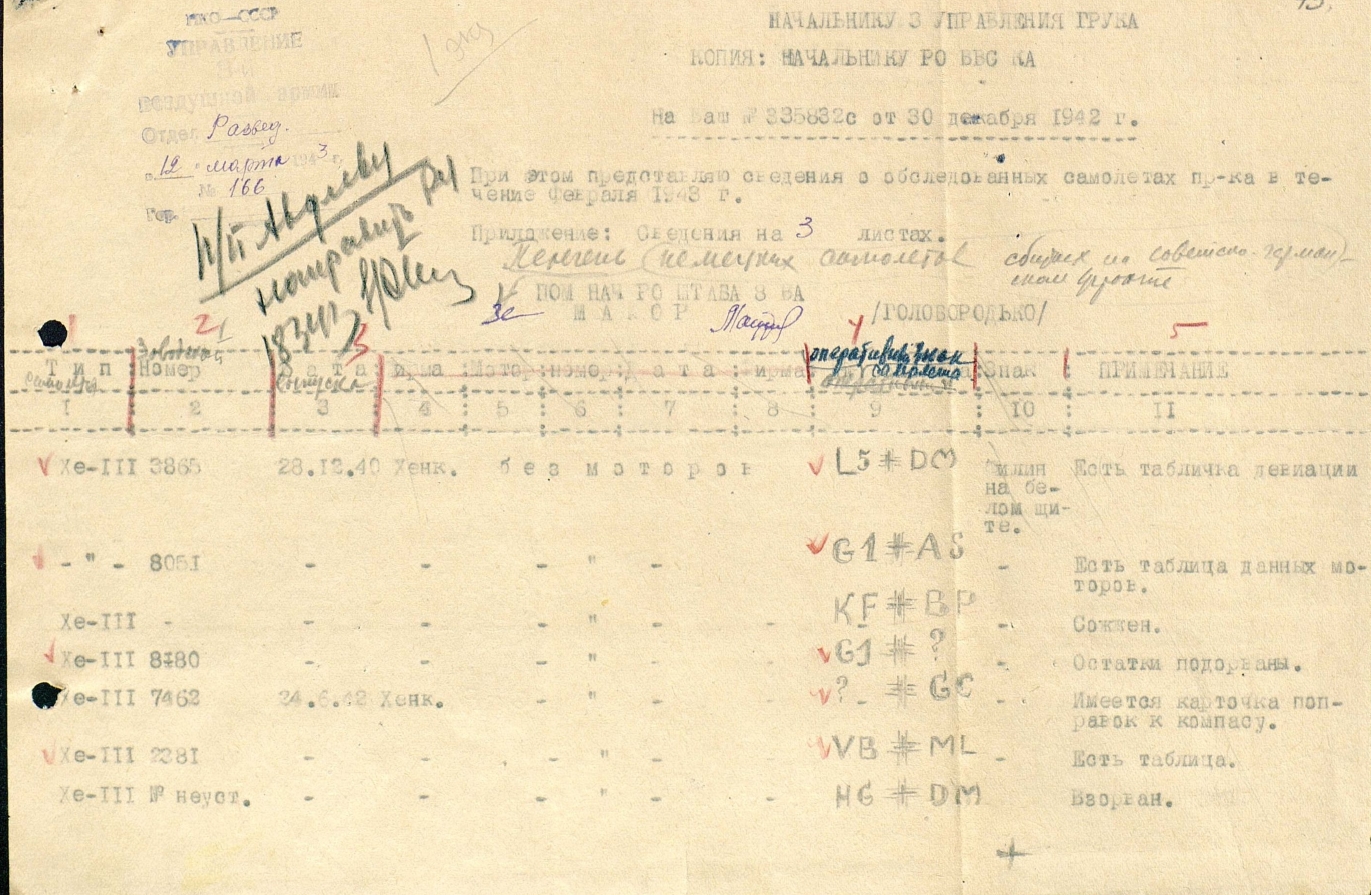 НКО—СССР
УПРАВЛЕНИЕ
3-й
Воздушной армии
Отдел Развед.
"12" марта 1943 г.
№ 166
Гор.
1 экз
НАЧАЛЬНИКУ 3 УПРАВЛЕНИЯ ГРУКА
КОПИЯ: НАЧАЛЬНИКУ РО ВВС КА
На Ваш № 335832с от 30 декабря 1942 г.
При этом представляю сведения о обследованных самолетах пр-ка в те-
чение февраля 1943 г.
Приложение: Сведения на 3 листах.
Перечень немецких самолетов сбитых на советско-герман-
ском фронте
п/п Авдееву
направить РУ
ПОМ НАЧ РО ШТАБА 3 ВА
За МАЙОР /ГОЛОВОРОДЬКО/
1 2 3 4 5
Тип самолета : Заводской Номер : Дата выпуска : Фирма : Мотор : номер : Дата : фирма : оперативный знак самолета : Знак : ПРИМЕЧАНИЕ
1 : 2 : 3 : 4 : 5 : 6 : 7 : 8 : 9 : 10 : 11
Хе-III 3865 28.12.40 Хенк. без моторов L5 # DM
на бе-
лом щи-
те. Есть табличка девиации
- " - 8051 - - - " - - G1 # AS - Есть таблица данных мо-
торов.
Хе-III - - - - " - - KF # BP - Сожжен.
Хе-III 8180 - - - " - - G1 # ? - Остатки подорваны.
Хе-III 7462 24.6.42 Хенк. - " - - ? # GC - Имеется карточка поп-
равок к компасу.
Хе-III 2381 - - - " - - VB # ML - Есть таблица.
Хе-III № неуст. - - - " - - H6 # DM - Взорван.